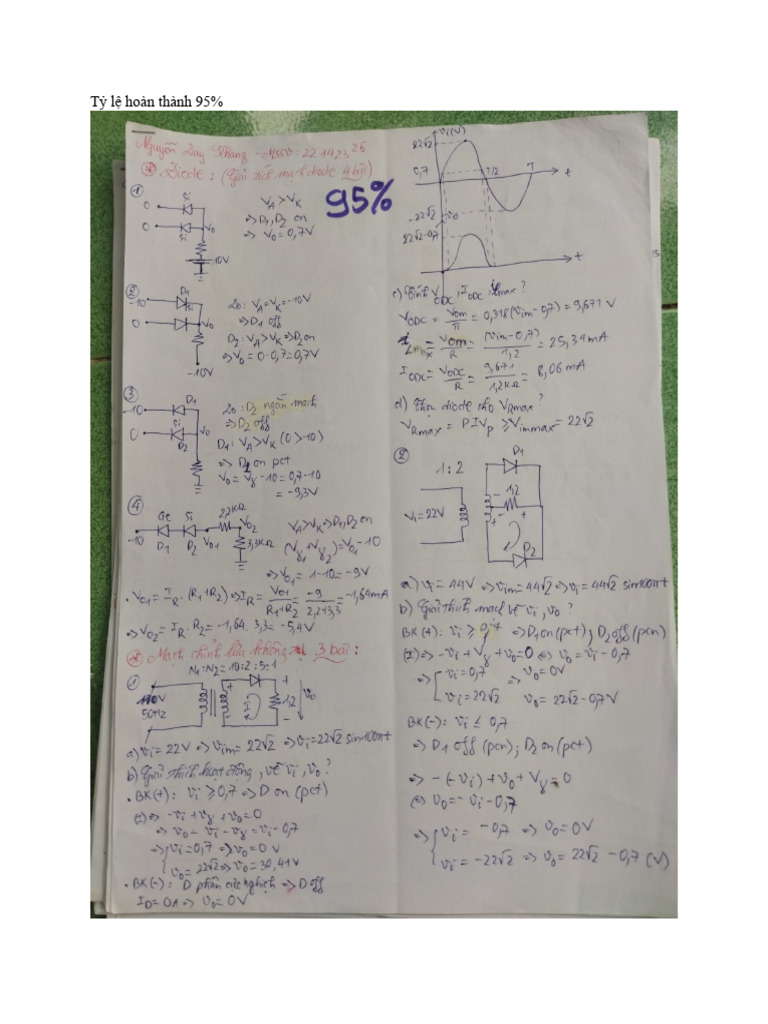 Tỷ lệ hoàn thành 95%
Nguyễn Duy Khang - MSSV: 22142326
* Diode: (Giải tích mạch diode 4 bài)
95%
①
0
Si
0
Si
V₀
10V
V_A > V_K
⇒ D₁, D₂ on
⇒ V₀ = 0,7V
②
-10
D₁
Si
0
V₀
-10V
D₁: V_A = V_K = -10V
⇒ D₁ off
D₂: V_A > V_K ⇒ D₂ on
⇒ V₀ = 0 - 0,7 = 0,7V
③
-10
D₁
0
Si
D₂
V₀
D₂ ngắn mạch
⇒ D₂ off
D₁: V_A > V_K (0 > -10)
on pct
V₀ = Vγ - 10 = 0,7 - 10
= -9,3V
④
Ge
Si
2,2KΩ
V₀₂
-10
D₁
D₂
V₀₁
3,3KΩ
V_A > V_K ⇒ D₁, D₂ on
(Vγ₁ + Vγ₂) = V₀₁ - 10
⇒ V₀₁ = 1 - 10 = -9V
• V₀₁ = I_R . (R₁ + R₂) ⇒ I_R = V₀₁ / (R₁ + R₂) = -9 / (2,2 + 3,3) = -1,64mA
⇒ V₀₂ = I_R . R₂ = -1,64 . 3,3 = -5,4V
* Mạch chỉnh lưu không 3 bài:
①
N₁:N₂ = 10:2 = 5:1
110V
50Hz
1,2
v₀
a) vi = 22V ⇒ vim = 22√2 ⇒ vi = 22√2 sin100πt
b) Giải thích hoạt động, vẽ vi, v₀?
• BK(+): vi ≥ 0,7 ⇒ D on (pct)
(I) ⇒ -vi + vγ + v₀ = 0
⇒ v₀ = vi - vγ = vi - 0,7
⇒ vi = 0,7 ⇒ v₀ = 0V
v₀ = 22√2 ⇒ v₀ = 30,41V
• BK(-): D phân cực nghịch ⇒ D off
I_D = 0A ⇒ v₀ = 0V
vi(V)
22√2
0,7
T/2
T
t
-22√2
v₀
22√2-0,7
t
c) Tính V_ODC, I_ODC, i_Lmax?
V_ODC = Vom/π = 0,318(Vim - 0,7) = 9,671V
i_Lmax = Vom/R = (Vim - 0,7)/1,2 = 25,34mA
I_ODC = V_ODC/R = 9,671/1,2KΩ = 8,06mA
d) Chọn diode cho V_Rmax?
V_Rmax = PIVp ≥ Vimmax = 22√2
②
1:2
D₁
V₁ = 22V
1,2
D₂
a) vi = 44V ⇒ vim = 44√2 ⇒ vi = 44√2 sin100πt
b) Giải thích mạch vẽ vi, v₀?
BK(+): vi ≥ 0,7 ⇒ D₁ on (pct); D₂ off (pcn)
(I) ⇒ -vi + Vγ + v₀ = 0 ⇔ v₀ = vi - 0,7
⇒ vi = 0,7 ⇒ v₀ = 0V
vi = 22√2 v₀ = 22√2 - 0,7V
BK(-): vi ≤ 0,7
⇒ D₁ off (pcn); D₂ on (pct)
⇒ -(-vi) + v₀ + Vγ = 0
⇔ v₀ = -vi - 0,7
⇒ vi = -0,7 ⇒ v₀ = 0V
vi = -22√2 ⇒ v₀ = 22√2 - 0,7 (V)